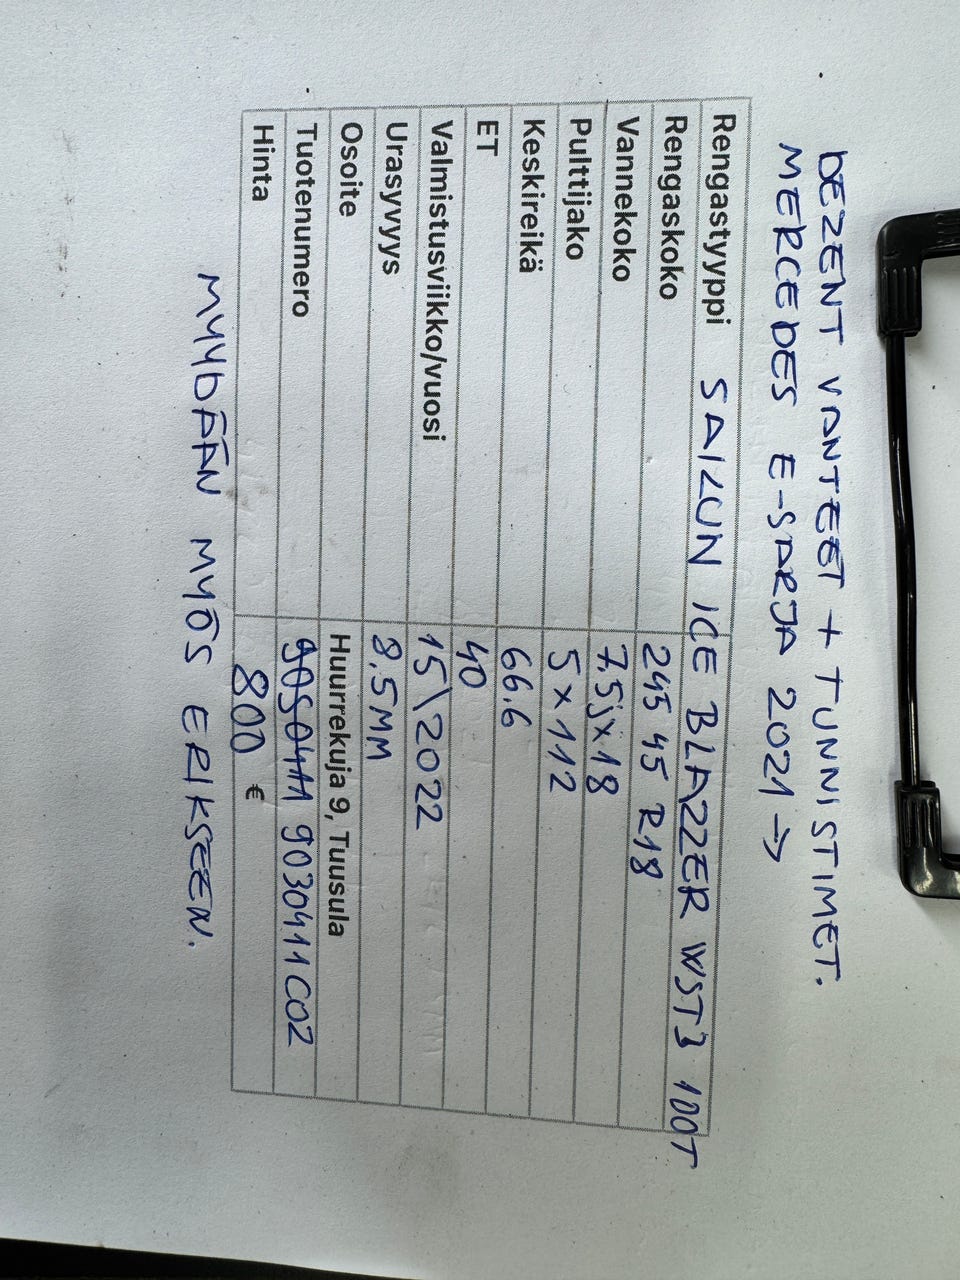 DEZENT VANTEET + TUNNISTIMET.
MERCEDES E-SARJA 2021 →
Rengastyyppi SAILUN ICE BLAZZER WST3 100T
Rengaskoko 245 45 R18
Vannekoko 7.5jx18
Pulttijako 5x112
Keskireikä 66.6
ET 40
Valmistusviikko/vuosi 15\2022
Urasyvyys 8.5MM
Osoite Huurrekuja 9, Tuusula
Tuotenumero 9030411C02
Hinta 800 €
MYYDÄÄN MYÖS ERIKSEEN.